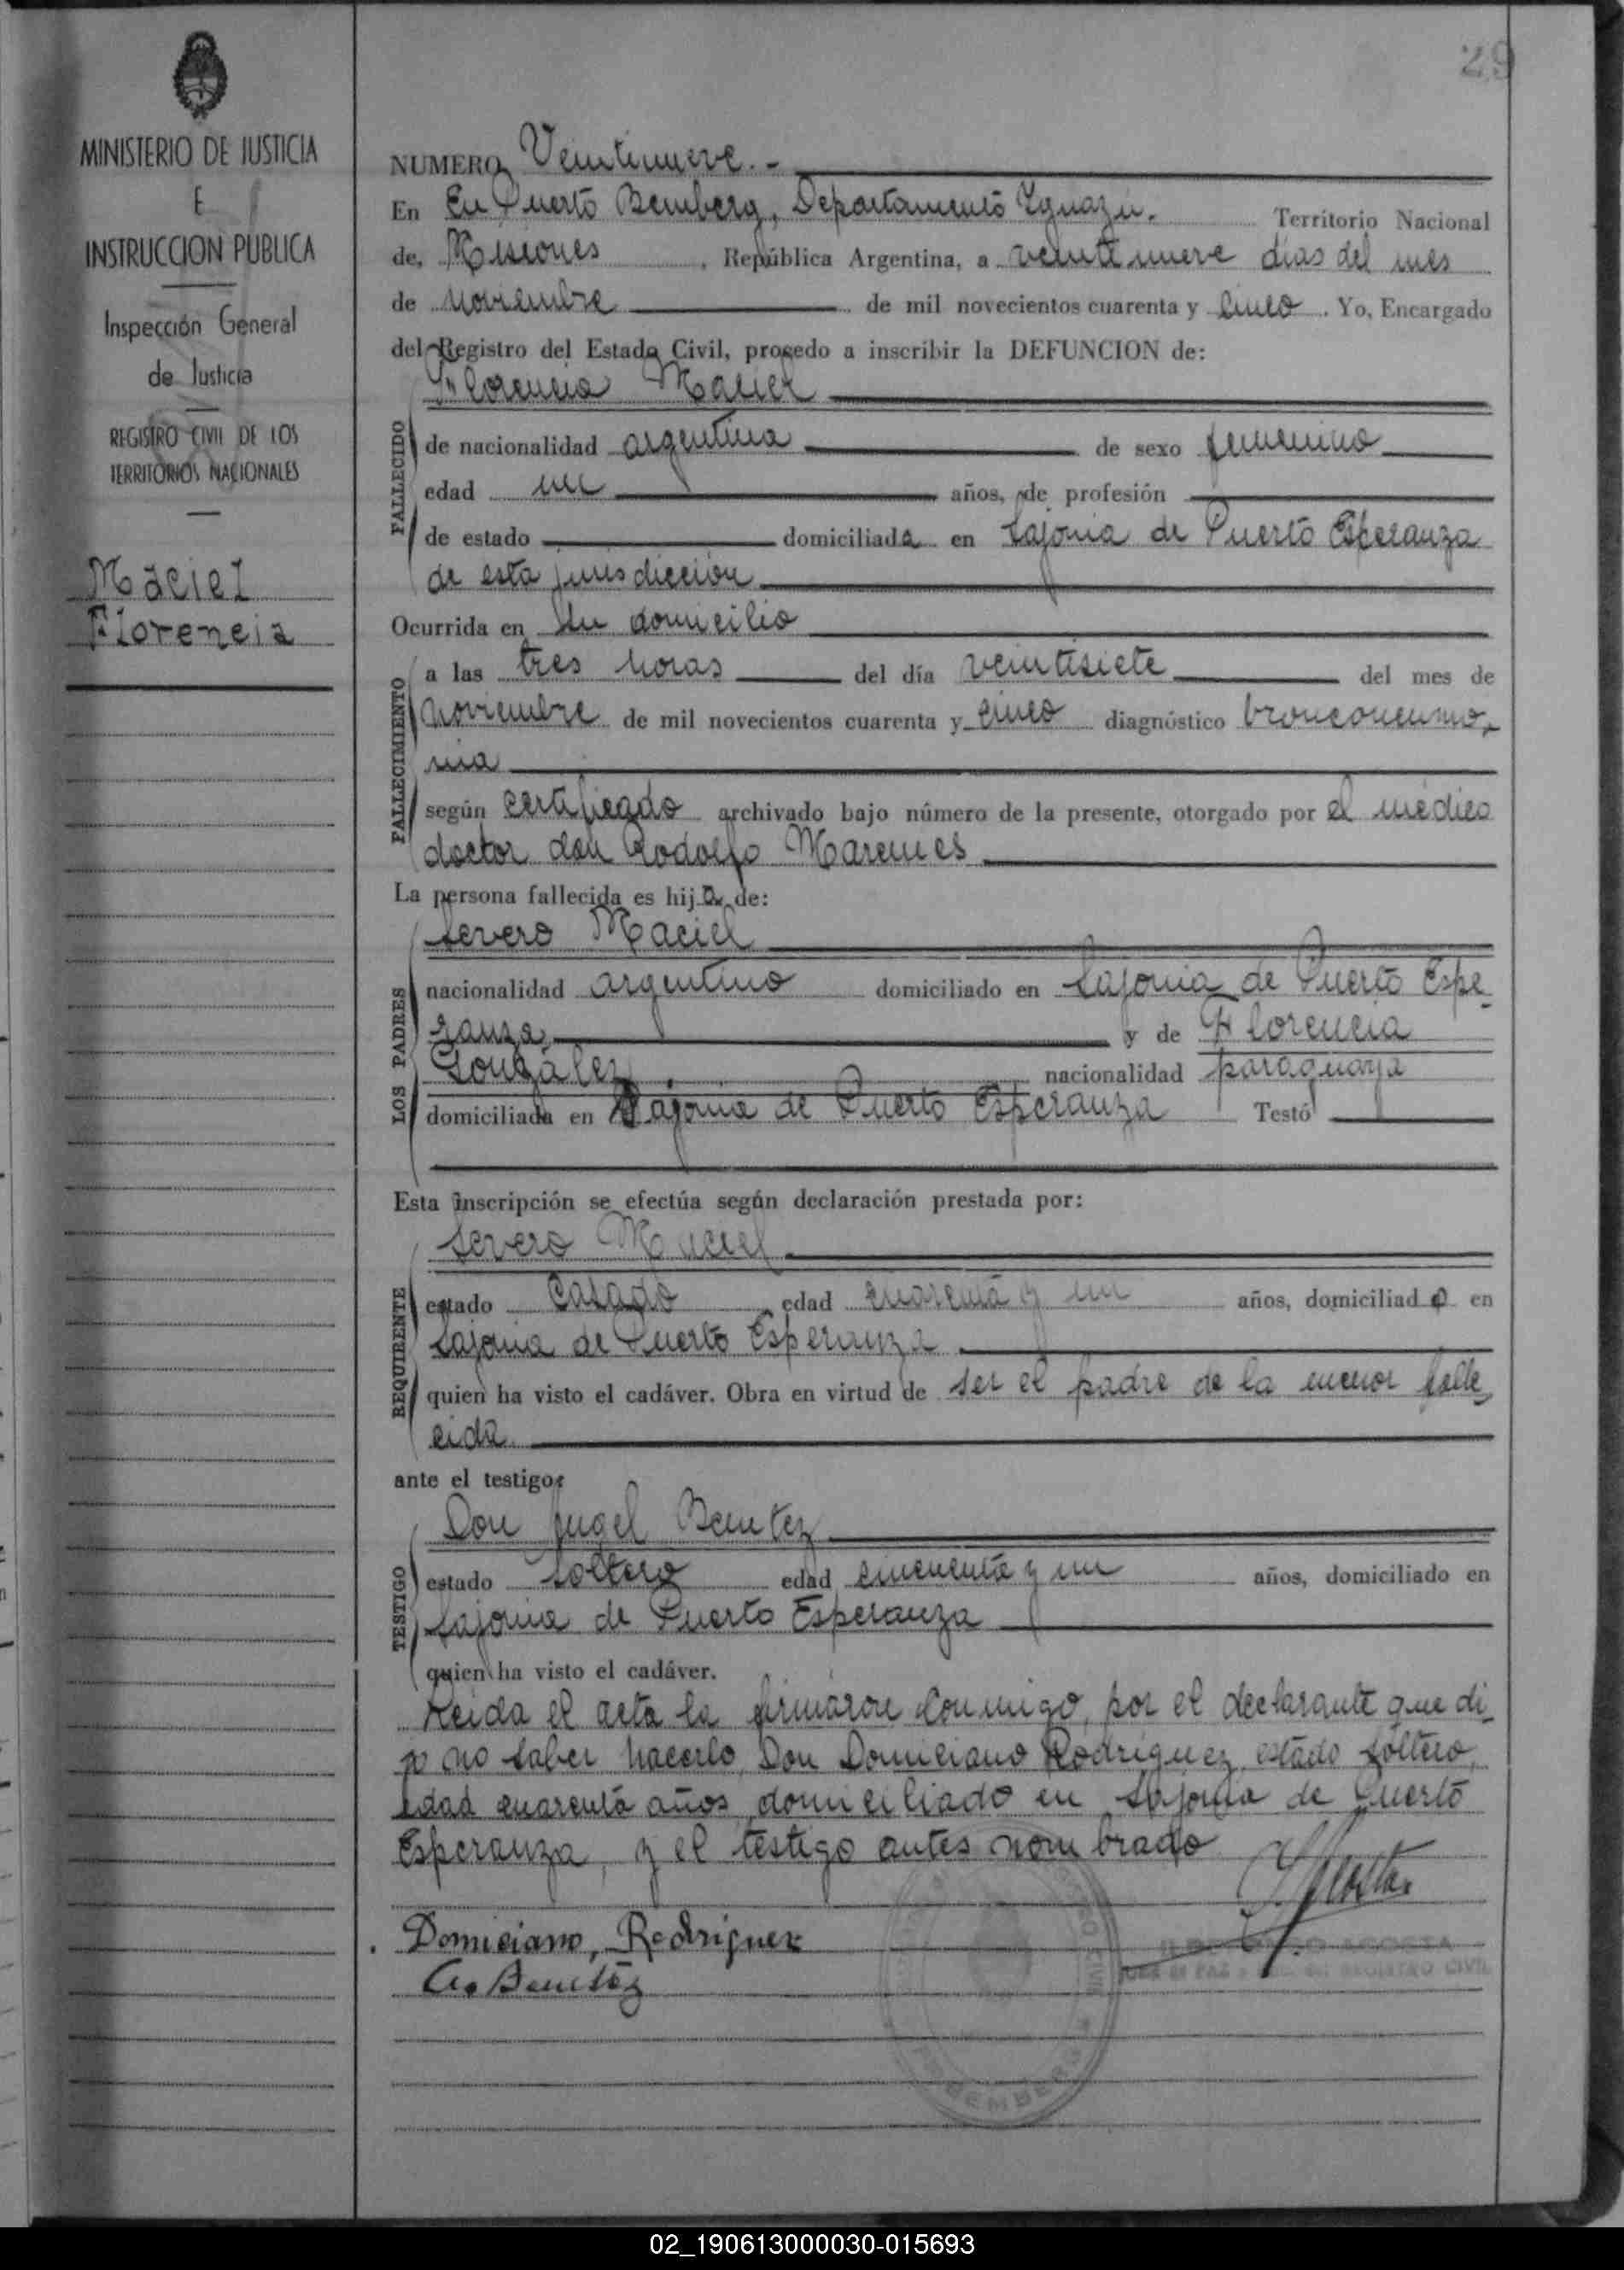 29
MINISTERIO DE JUSTICIA
E
INSTRUCCION PUBLICA
Inspección General
de Justicia
REGISTRO CIVIL DE LOS
TERRITORIOS NACIONALES
Maciel
Florencia
NUMERO Veintinueve.-
En En Puerto Bemberg, Departamento Yguazú. Territorio Nacional
de, Misiones, República Argentina, a veintinueve días del mes
de noviembre de mil novecientos cuarenta y cinco. Yo, Encargado
del Registro del Estado Civil, procedo a inscribir la DEFUNCION de:
Florencia Maciel
FALLECIDO
de nacionalidad argentina de sexo femenino
edad un años, de profesión
de estado domiciliada en Sajonia de Puerto Esperanza
de esta jurisdicción
Ocurrida en su domicilio
FALLECIMIENTO
a las tres horas del día veintisiete del mes de
noviembre de mil novecientos cuarenta y cinco diagnóstico bronconeumo-
nia
según certificado archivado bajo número de la presente, otorgado por el médico
doctor don Rodolfo
La persona fallecida es hija de:
LOS PADRES
Severo Maciel
nacionalidad argentino domiciliado en Sajonia de Puerto Espe-
ranza y de Florencia
González nacionalidad paraguaya
domiciliada en Sajonia de Puerto Esperanza Testó
Esta inscripción se efectúa según declaración prestada por:
REQUIRENTE
Severo Maciel
estado casado edad cuarenta y un años, domiciliado en
Sajonia de Puerto Esperanza
quien ha visto el cadáver. Obra en virtud de ser el padre de la menor falle-
cida.
ante el testigo:
TESTIGO
Don Angel Benitez
estado soltero edad cincuenta y un años, domiciliado en
Sajonia de Puerto Esperanza
quien ha visto el cadáver.
Leida el acta la firmaron conmigo, por el declarante que di-
jo no saber hacerlo, Don Domiciano Rodriguez, estado soltero,
edad cuarenta años, domiciliado en Sajonia de Puerto
Esperanza, y el testigo antes nombrado
Acosta
Domiciano, Rodriguez
ACOSTA
JUEZ DE PAZ REGISTRO CIVIL
Benitez
BEMBERG
02_190613000030-015693